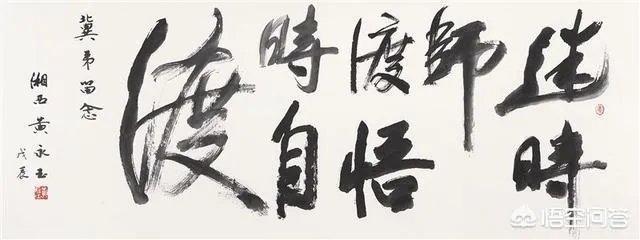 迷時
師
渡悟
時自
渡
冀弟留念
湘西黄永玉
戊辰
悟空问答